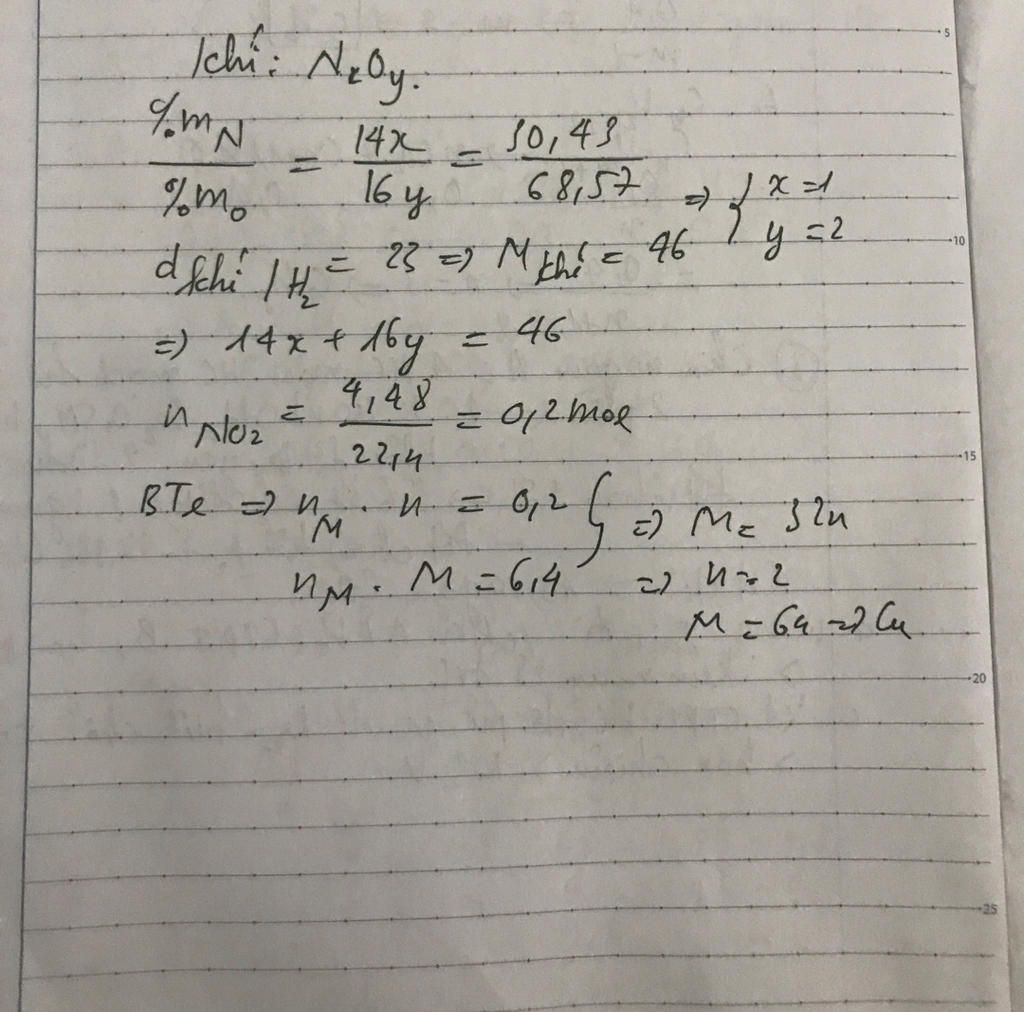 Khí: NxOy.
%mN / %mO = 14x / 16y = 30,43 / 68,57 => { x = 1
y = 2
d khí / H2 = 23 => M khí = 46
=> 14x + 16y = 46
n NO2 = 4,48 / 22,4 = 0,2 mol
BTe => nM . n = 0,2 } => M = 32n
nM . M = 6,4 => n = 2
M = 64 => Cu
5
10
15
20
25